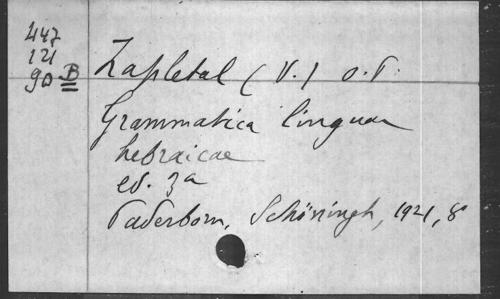 447
121
90 B
Zapletal (V.) O.P.
Grammatica linguae
hebraicae
ed. 3a
Paderborn, Schöningh, 1921, 8°